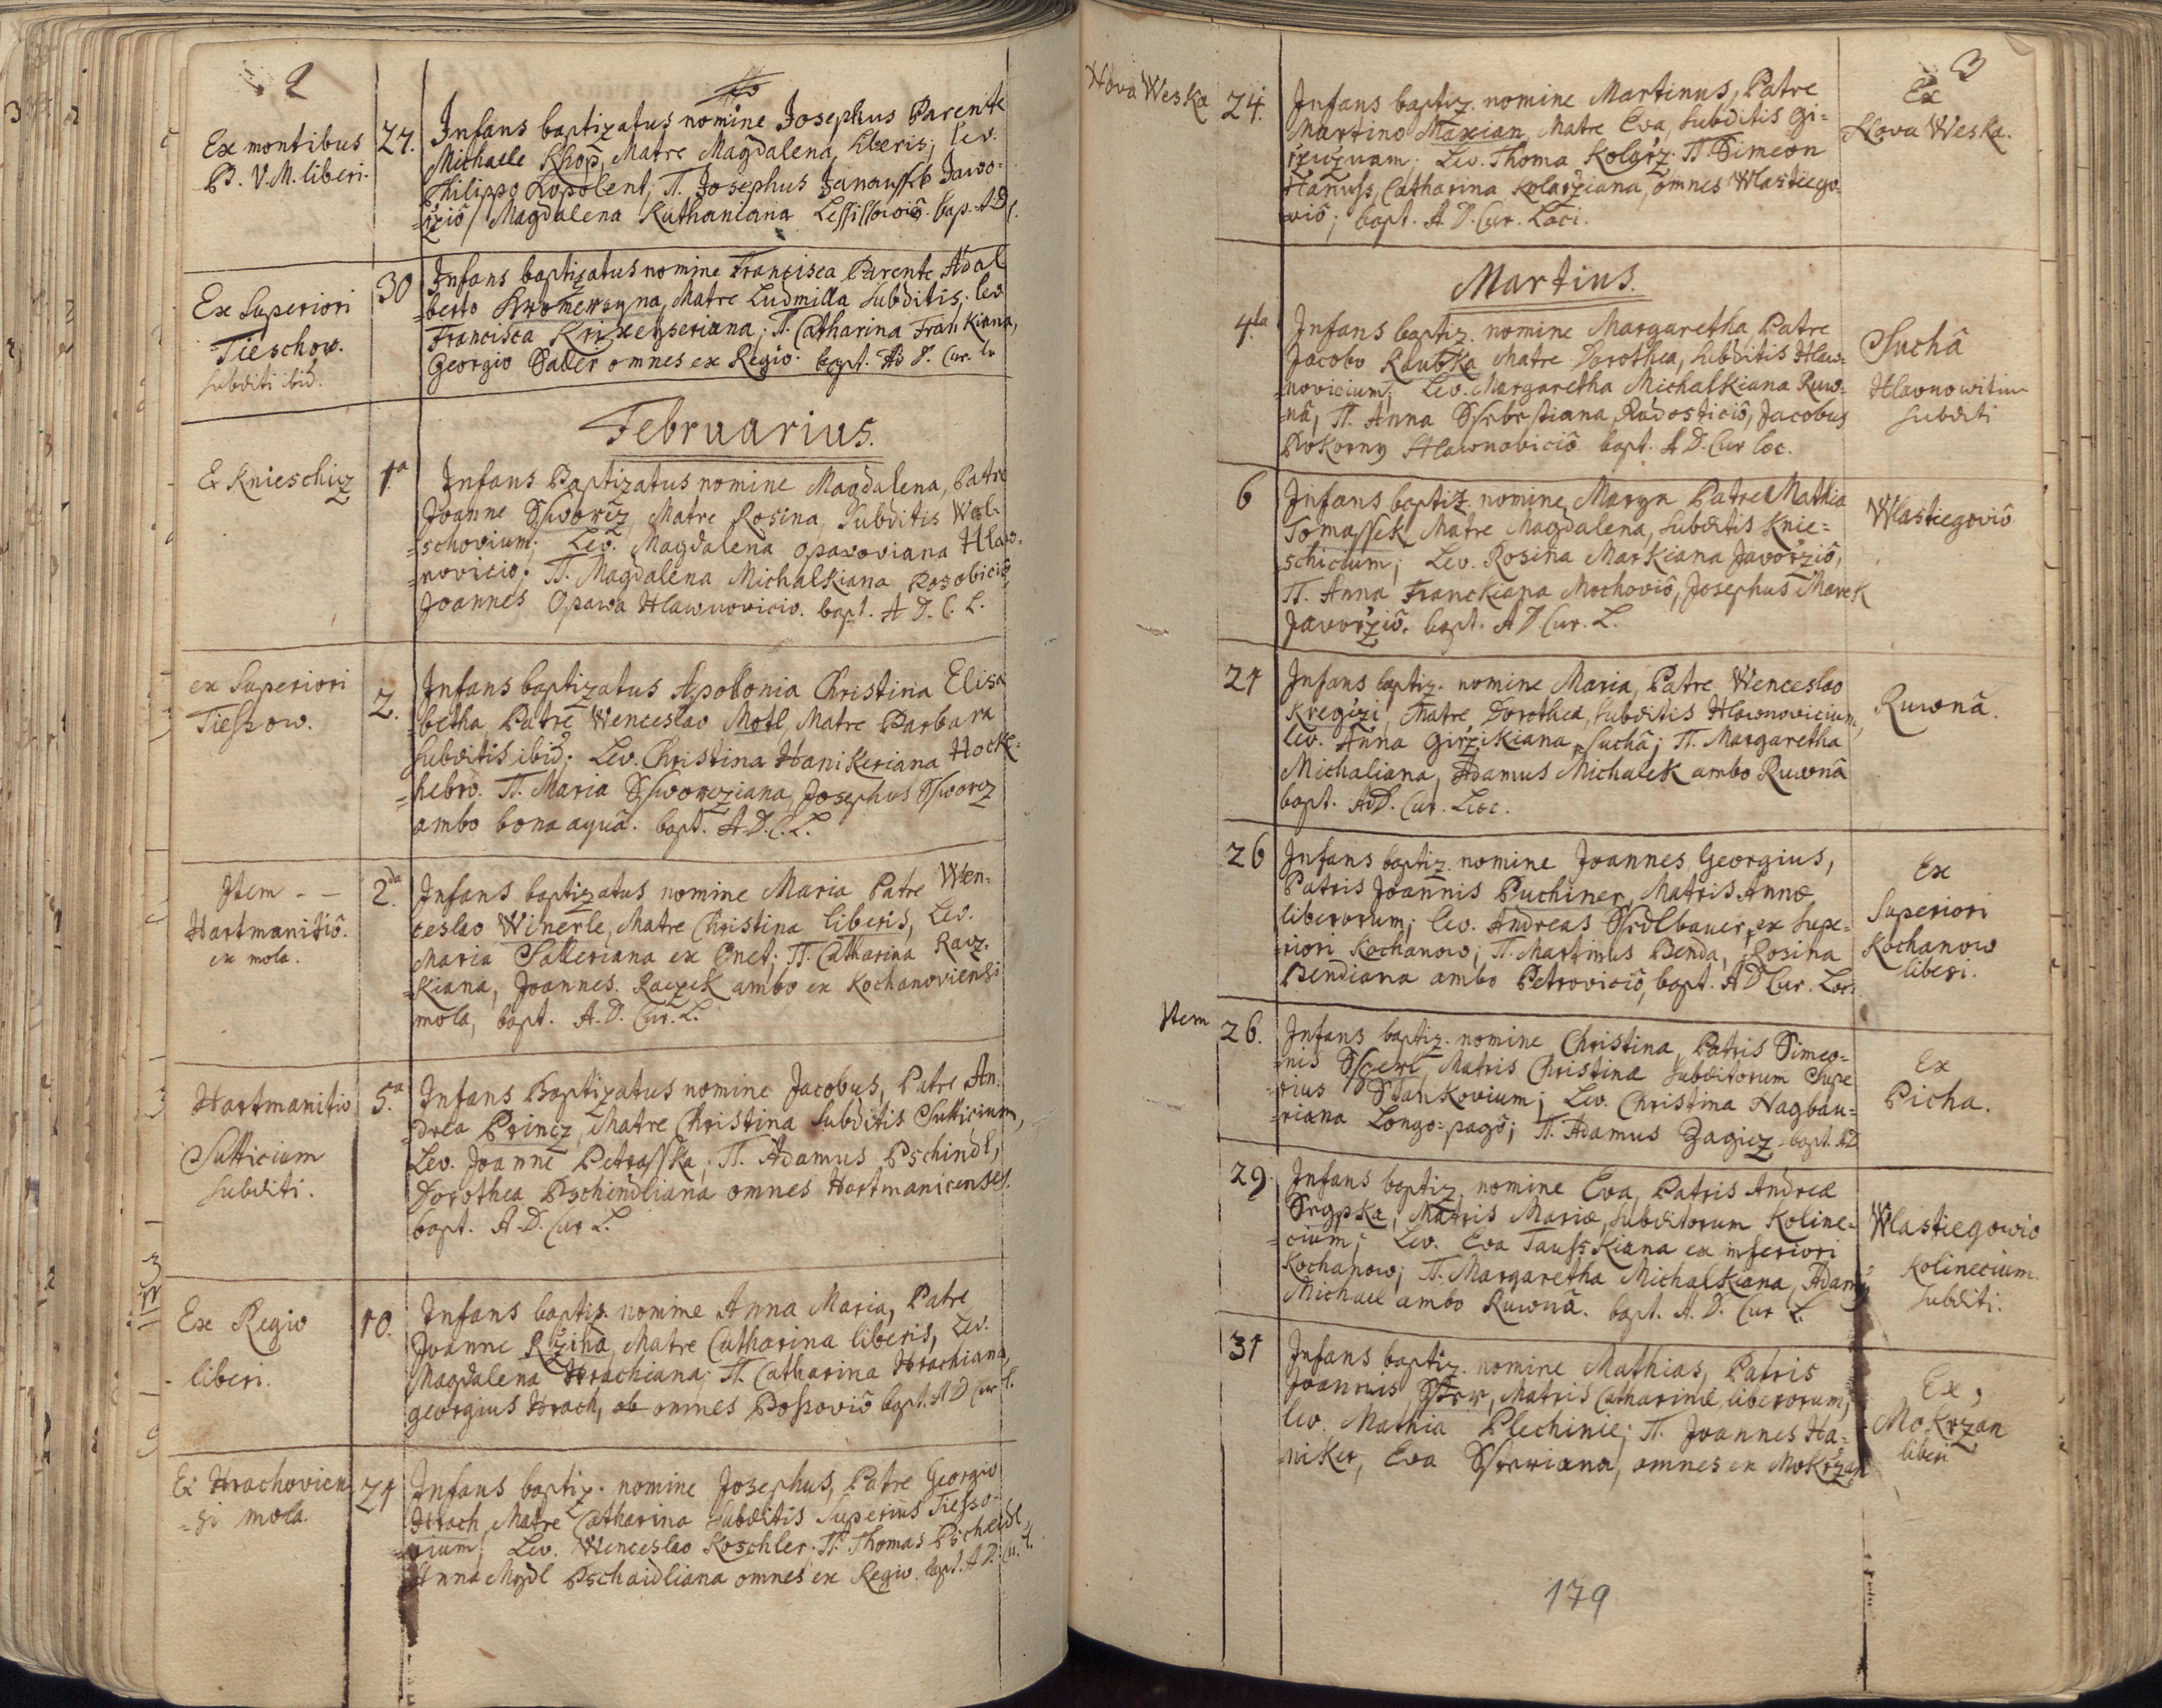 2
Ex montibus
B. V. M. liberi.
27.
Infans baptizatus nomine Josephus Parente
Michaele Khop, Matre Magdalena, liberis; lev.
Philippo Lopolent; T. Josephus Janaussek Jawo-
=rziô, Magdalena Kuthaniana bap. A D
Ex Superiori
Tieschow.
subditi ibid.
30
Infans baptizatus nomine Francisca Parente Adal
=berto Matre Ludmilla subditis; lev
Francisca T. Catharina Frankiana,
Georgio Saller omnes ex Regio. bapt. A D. Cur. Lo
Februarius.
Ex Knieschiz
1a
Infans Baptizatus nomine Magdalena, Patre
Joanne Sswortz, Matre Rosina, subditis Wel-
=schovium; Lev. Magdalena Opavoviana Hlaw-
=novicio; T. Magdalena Michalkiana Rosobiciô,
Joannes Opawa Hlawnovicio. bapt. A D. C. L.
ex Superiori
Tieszow.
2.
Infans baptizatus Apollonia Christina Elisa
=betha, Patre Wenceslao Motl, Matre Barbara
subditis ibid; Lev. Christina Hanikeriana Hock-
=hebro. T. Maria Ssworcziana, Josephus Ssworcz
ambo bona aquâ. bapt. A. D. C. L.
Item - -
Hartmanitiô.
ex mola.
2da
Infans baptizatus nomine Maria Patre Wen-
ceslao Winerle, Matre Christina liberis, Lev.
Maria Salleriana ex Onet; T. Catharina Racz-
=kiana, Joannes Raczek ambo ex Kochanoviensi
mola, bapt. A. D. Cur. L.
Hartmanitio
Sutticium
subditi.
5a
Infans Baptizatus nomine Jacobus, Patre An-
=drea Princz, Matre Christina subditis Sutticium,
Lev. Joanne Petrasska; T. Adamus Pschindl,
Dorothea Pschindliana omnes Hartmanicenses.
bapt. A. D. Cur L.
Ex Regio
liberi.
10.
Infans baptiz. nomine Anna Maria, Patre
Joanne Rziha, Matre Catharina liberis, Lev.
Magdalena Hrachiana; T. Catharina Hrachiana,
georgius Hrach, omnes Possoviô bapt. A D Cur L.
Ex Hrachovien
=si mola.
21
Infans baptiz. nomine Josephus, Patre Georgio
Hrach, Matre Catharina subditis Superius Tiesso-
=vium; Lev. Wenceslao Koschler. T. Thomas Pscheidl,
Anna Pschaidliana omnes ex Regio. bapt. A D. Cu. L.
3
Nova Weska
24.
Infans baptiz. nomine Martinus, Patre
Martino Maxian, Matre Eva, subditis Gi-
Lev. Thoma Kolarz. T. Simeon
Hanuss, Catharina Kolarziana, omnes Wlastiego-
viô; bapt. A D. Cur. Loci.
Ex
Nova Weska.
Martius.
4ta
Infans baptiz. nomine Margaretha, Patre
Jacobo Raubka, Matre Dorothea, subditis Hlaw-
=novicium; Lev. Margaretha Michalkiana Ruw-
=nâ, T. Anna Ssebestiana Radosticiô, Jacobus
Pokorny Hlawnoviciô bapt. A D. Cur loc.
Suchâ
Hlavnowitium
subditi
6
Infans baptiz. nomine Maryn Patre Mathia
Tomassek Matre Magdalena, subditis Knie-
schicium; Lev. Rosina Markiana Javorziô,
T. Anna Franckiana Mochoviô, Josephus Marek
Javorziô. bapt. A D. Cur. L.
Wlastiegoviô
21
Infans baptiz. nomine Maria, Patre Wenceslao
Kregczi, Matre Dorothea, subditis Hlawnovicium,
lev. Anna Girzikiana Suchâ; T. Margaretha
Michaliana, Adamus Michalek ambo Ruwnâ
bapt. A D. Cur. Loc.
Ruwnâ.
26
Infans baptiz. nomine Joannes Georgius,
Patris Joannis Puchiner, Matris Annæ
liberorum; lev. Andreas Ssedlbauer, ex supe-
riori Kochanow; T. Martinus Benda, Rosina
Bendiana ambo Petroviciô, bapt. A D Cur. Loc.
Ex
Superiori
Kochanow
liberi.
Item
26.
Infans baptiz. nomine Christina, Patris Simeo-
=nis Matris Christinæ subditorum Supe
=rius Stankovium; Lev. Christina Hagbau-
=riana Longo-pagô; T. Adamus Zagicz bapt. A D
Ex
Picha.
29.
Infans baptiz. nomine Eva, Patris Andreæ
Srpka, Matris Mariæ, subditorum Koline-
=cium; Lev. Eva Tausskiana ex inferiori
Kochanow; T. Margaretha Michalkiana, Adam9
Michael ambo Ruwnâ. bapt. A. D. Cur L.
Wlastiegowio
Kolinecium
subditi.
31
Infans baptiz. nomine Mathias, Patris
Joannis Matris Catharinæ, liberorum;
lev. Mathia Plechinie; T. Joannes Ha-
niker, Eva omnes ex Mokrzan
Ex
Mokrzan
liberi
179